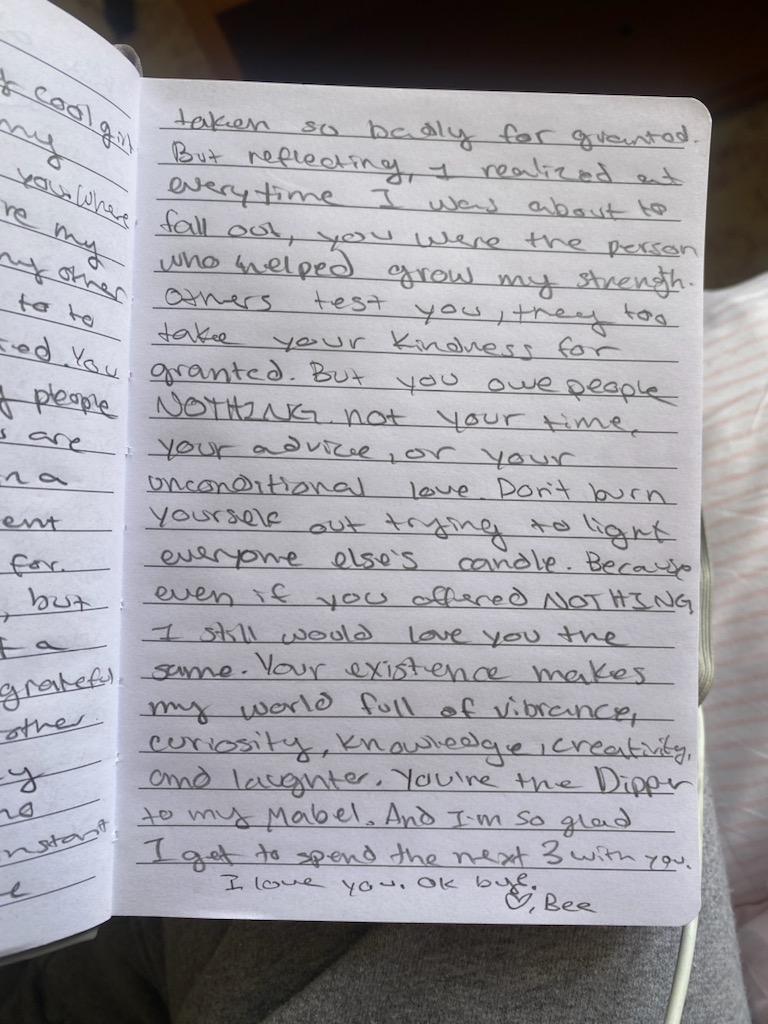 f cool girl
my
you. Where
re my
my other
to to
ed. You
f people
s are
n a
ent
for.
, but
t a
grateful
other.
y
nd
instant
e
taken so badly for granted.
But reflecting, I realized at
everytime I was about to
fall out, you were the person
who helped grow my strength.
Others test you, they too
take your kindness for
granted. But you owe people
NOTHING. not your time,
your advice, or your
unconditional love. Don't burn
yourself out trying to light
everyone else's candle. Because
even if you offered NOTHING
I still would love you the
same. Your existence makes
my world full of vibrance,
curiosity, knowledge, creativity,
and laughter. You're the Dipper
to my Mabel. And I'm so glad
I get to spend the next 3 with you.
I love you. ok bye.
♡, Bee